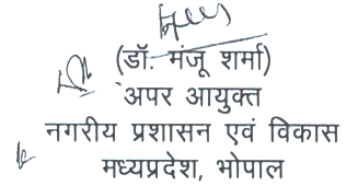 (डॉ. मंजू शर्मा)
अपर आयुक्त
नगरीय प्रशासन एवं विकास
मध्यप्रदेश, भोपाल